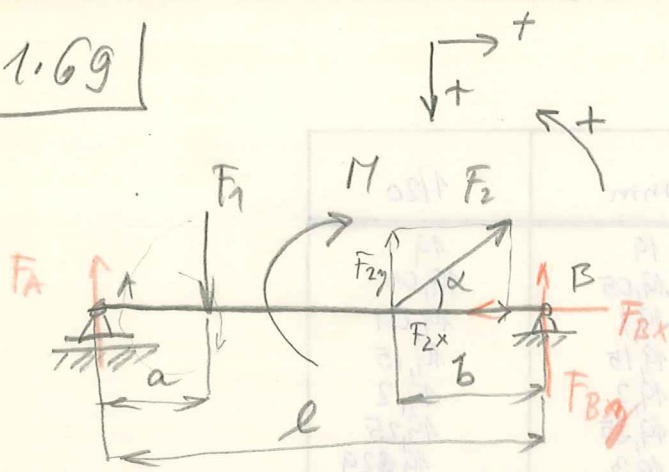 1.69
+
+
+
F₁
M
F₂
F_A
A
F₂y
α
B
F₂x
F_Bx
a
b
F_By
l